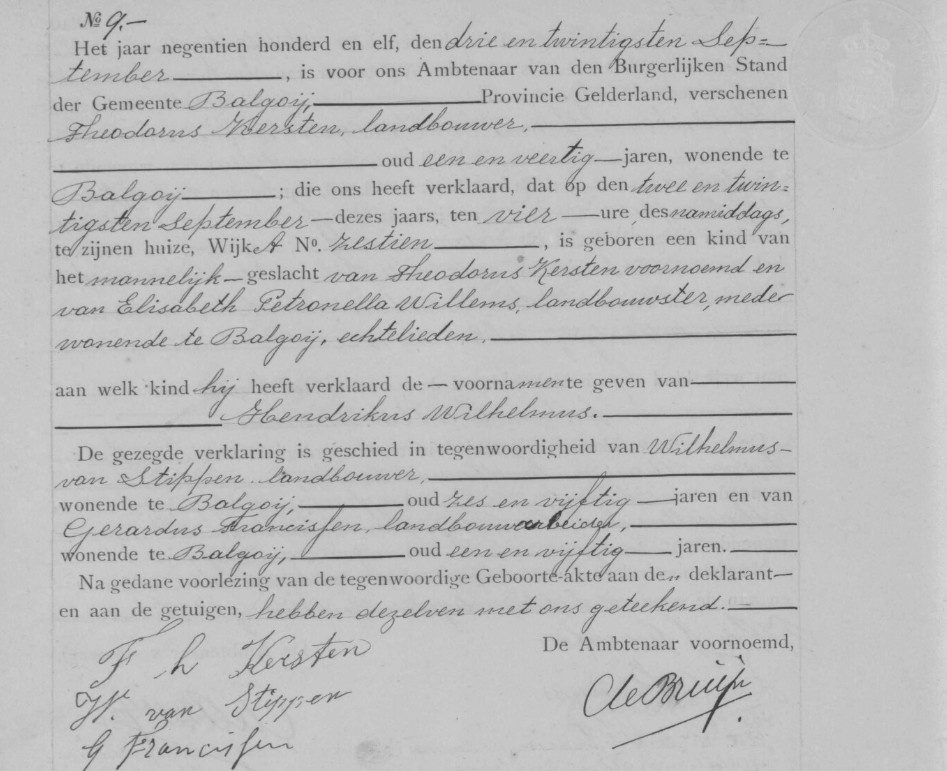 № 9.-
Het jaar negentien honderd en elf, den drie en twintigsten Sep=
tember, is voor ons Ambtenaar van den Burgerlijken Stand
der Gemeente Balgoij, Provincie Gelderland, verschenen
Theodorus Kersten, landbouwer,
oud een en veertig jaren, wonende te
Balgoij; die ons heeft verklaard, dat op den twee en twin=
tigsten September dezes jaars, ten vier ure, des namiddags,
te zijnen huize, Wijk A No. zestien, is geboren een kind van
het mannelijk geslacht van Theodorus Kersten voornoemd en
van Elisabeth Petronella Willems, landbouwster, mede
wonende te Balgoij, echtelieden.
aan welk kind hij heeft verklaard de voornamen te geven van
Hendrikus Wilhelmus.
De gezegde verklaring is geschied in tegenwoordigheid van Wilhelmus
van Stippen landbouwer,
wonende te Balgoij, oud zes en vijftig jaren en van
Gerardus Francissen, landbouwarbeider,
wonende te Balgoij, oud een en vijftig jaren.
Na gedane voorlezing van de tegenwoordige Geboorte-akte aan de „ deklarant
en aan de getuigen, hebben dezelven met ons geteekend.
De Ambtenaar voornoemd,
Th Kersten
W. van Stippen
de Bruijn
G Francissen